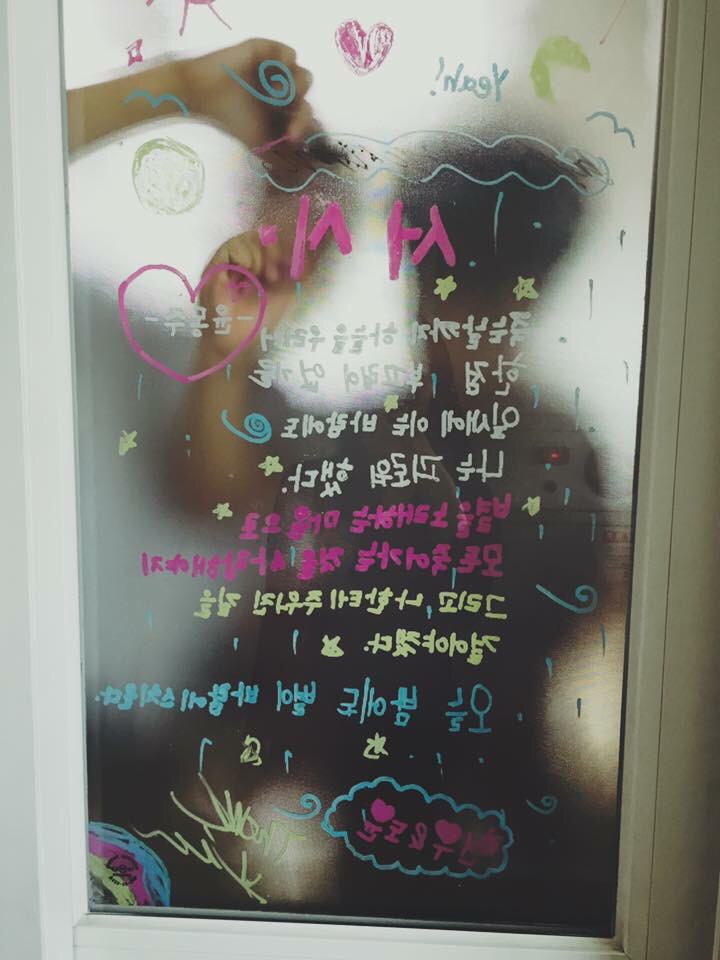 Yeah!
서시.
-윤동주-
죽는날까지 하늘을 우러러
한점 부끄럼이 없기를
잎새에 이는 바람에도
나는 괴로워 했다.
별을 노래하는 마음으로
모든 죽어가는 것을 사랑해야지
그리고 나한테 주어진 길을
걸어야겠다.
오늘 밤에도 별이 바람에 스치운다.